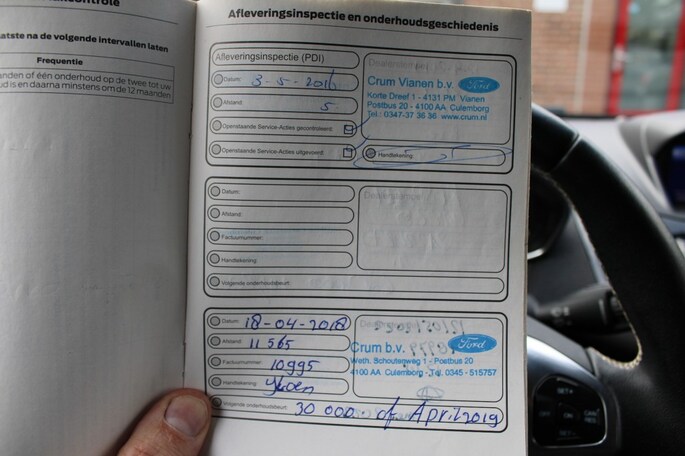 controle
Afleveringsinspectie en onderhoudsgeschiedenis
aatste na de volgende intervallen laten
Frequentie
anden of één onderhoud op de twee tot uw
ud is en daarna minstens om de 12 maanden
Afleveringsinspectie (PDI)
Datum: 3-5-2016
Afstand: 5
Openstaande Service-Acties gecontroleerd:
Openstaande Service-Acties uitgevoerd:
Crum Vianen b.v. Ford
Korte Dreef 1 - 4131 PM Vianen
Postbus 20 - 4100 AA Culemborg
Tel.: 0347-37 36 36 www.crum.nl
Handtekening
Datum:
Afstand:
Factuurnummer:
Handtekening
Volgende onderhoudsbeurt:
Datum: 18-04-2018
Afstand: 11565
Factuurnummer: 10995
Handtekening
Ford
Crum b.v.
Weth. Schoutenweg 1 - Postbus 20
4100 AA Culemborg - Tel. 0345 - 515757
Volgende onderhoudsbeurt: 30 000 of April 2019
SET+
ON
SET-
CAN
RES